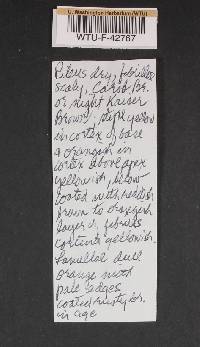 U. Washington Herbarium/WTU
WTU-F-42767
Pileus dry,
scaly,
or slight Kaiser
Brown, yellow
in cortex of base
& orangish in
cortex above apex
yellowish, below
coated with reddish
brown to orangish
layer of
context yellowish.
Lamellae dull
orange with
pale edges
coated rusty br.
in age